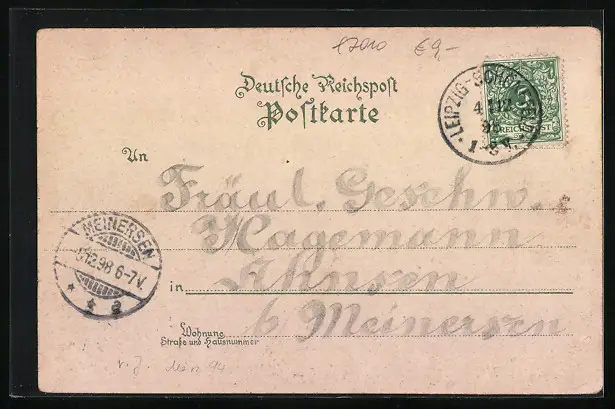 17010 €9,-
Deutsche Reichspost
Postkarte
LEIPZIG-
4 12
98
REICHSPOST
An
Fräul. Geschw.
Hagemann
in Ahnsen
b/ Meinersen
MEINERSEN
5.12.98 6-7V.
Wohnung
Straße und Hausnummer